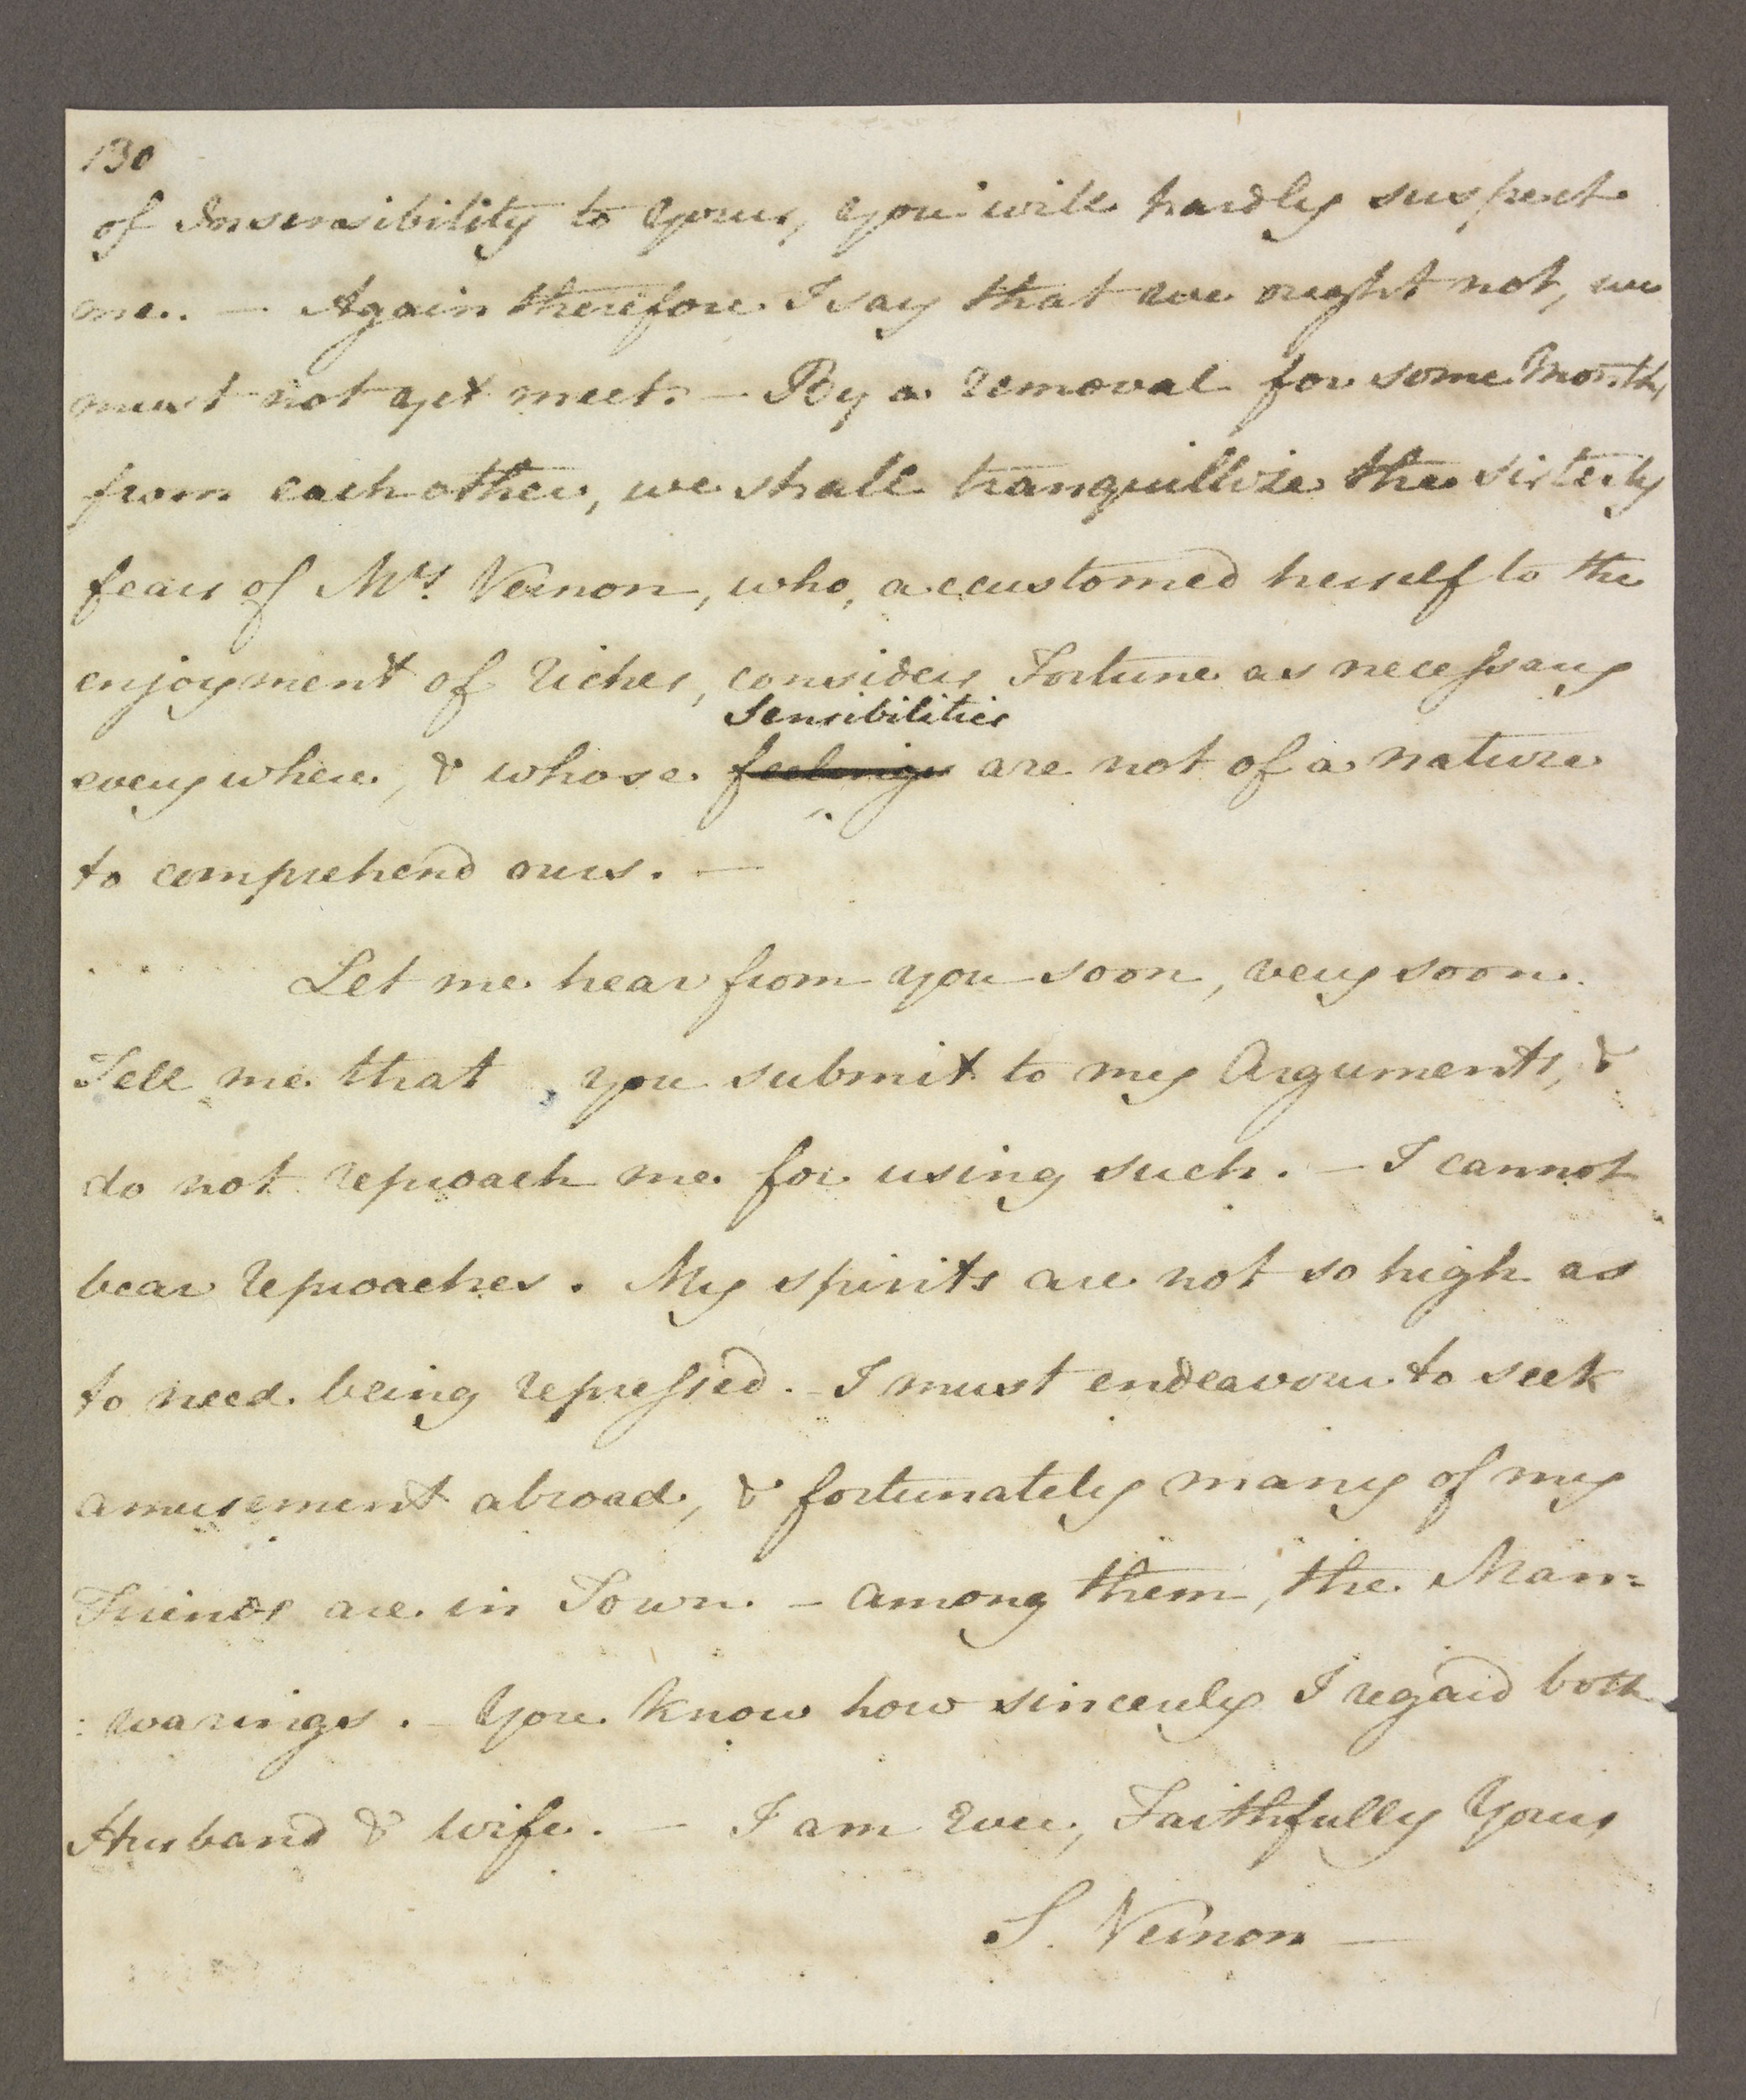 130
of Insensibility to yours, you will hardly suspect
me. — Again therefore I say that we ought not, we
must not yet meet. — By a removal for some Months
from each other, we shall tranquillize the sisterly
fears of Mrs. Vernon, who, accustomed herself to the
enjoyment of riches, considers Fortune as necessary
Sensibilities
every where, & whose feelings are not of a nature
to comprehend ours. —
Let me hear from you soon, very soon.
Tell me that you submit to my Arguments, &
do not reproach me for using such. — I cannot
bear reproaches. My spirits are not so high as
to need being repressed. — I must endeavour to seek
amusement abroad, & fortunately many of my
Friends are in Town. — among them, the Man=
:warings. — You know how sincerely I regard both
Husband & wife. — I am Ever, Faithfully Yours
S. Vernon —